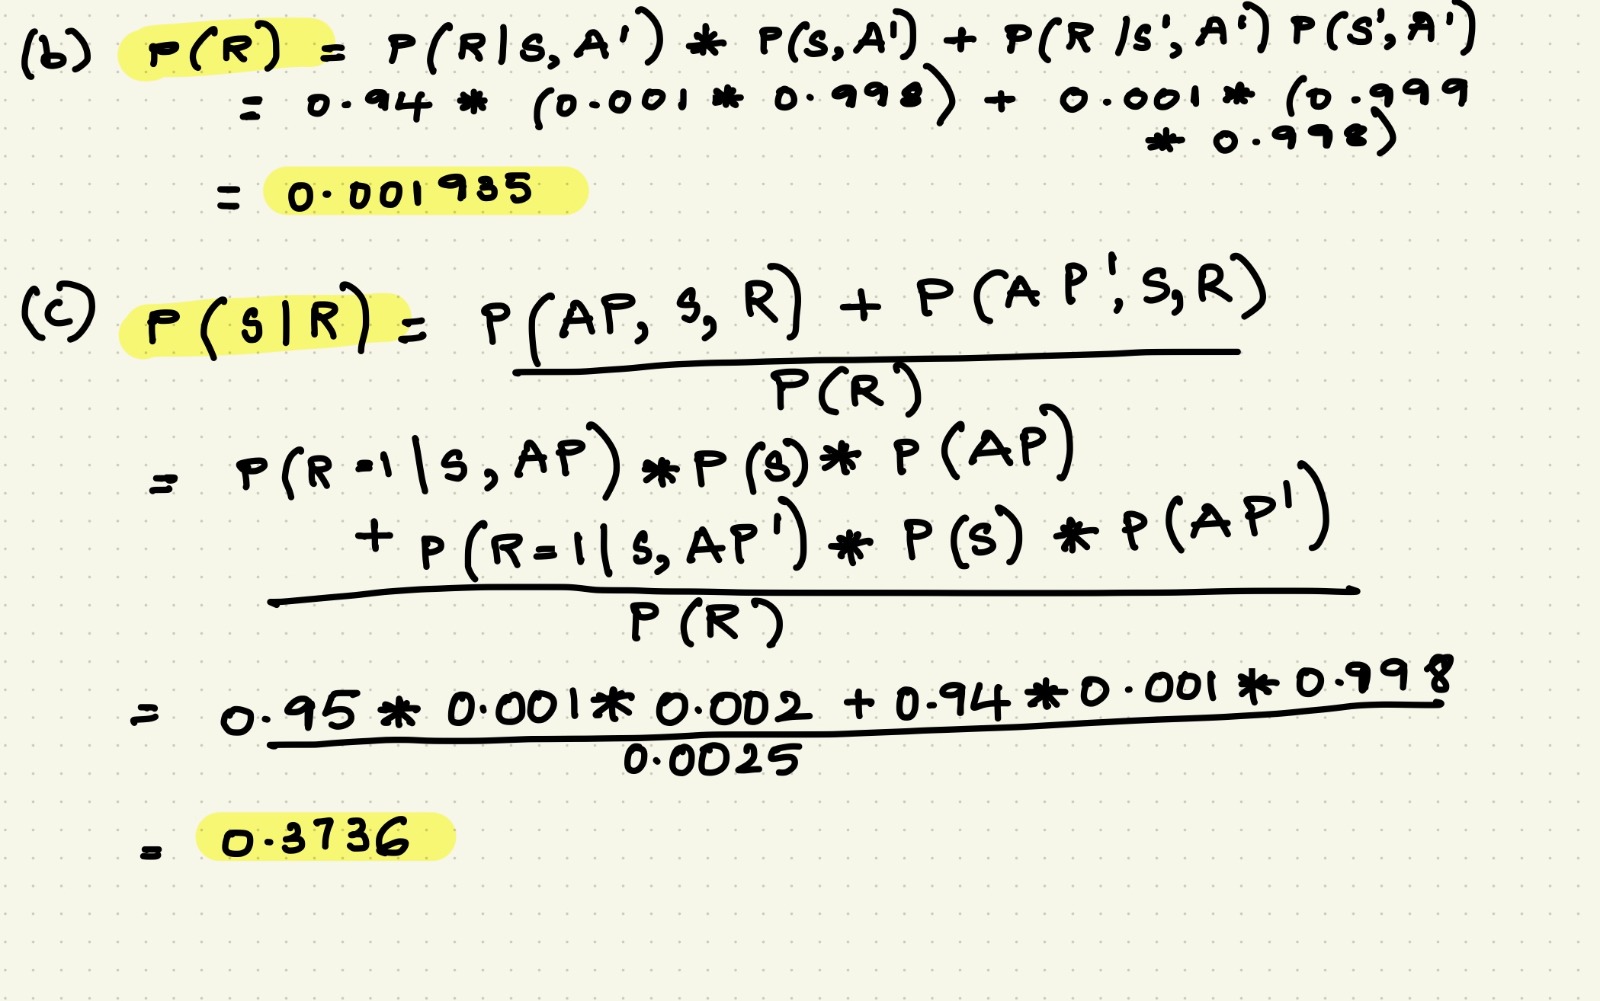 (b) P(R) = P(R|S, A') * P(S, A') + P(R/S', A') P(S', A')
= 0.94 * (0.001 * 0.998) + 0.001 * (0.999
* 0.998)
= 0.001935
(c) P(S|R) = P(AP, S, R) + P(AP', S, R)
P(R)
= P(R=1|S, AP) * P(S) * P(AP)
+ P(R=1|S, AP') * P(S) * P(AP')
P(R)
= 0.95 * 0.001 * 0.002 + 0.94 * 0.001 * 0.998
0.0025
= 0.3736